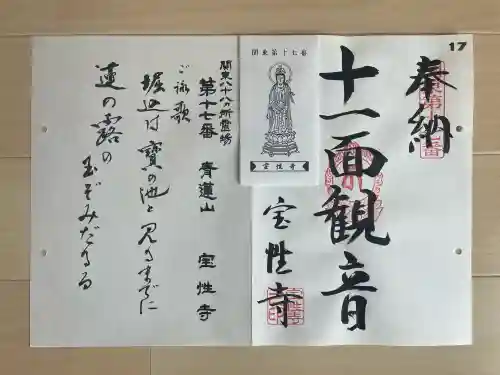 17
奉納
十一面観音
宝性寺
関東第十七番
宝性寺
関東八十八ヵ所霊場
第十七番 青蓮山 宝性寺
ご詠歌
堀込は寶の池と見るまでに
蓮の露の玉ぞみだるる